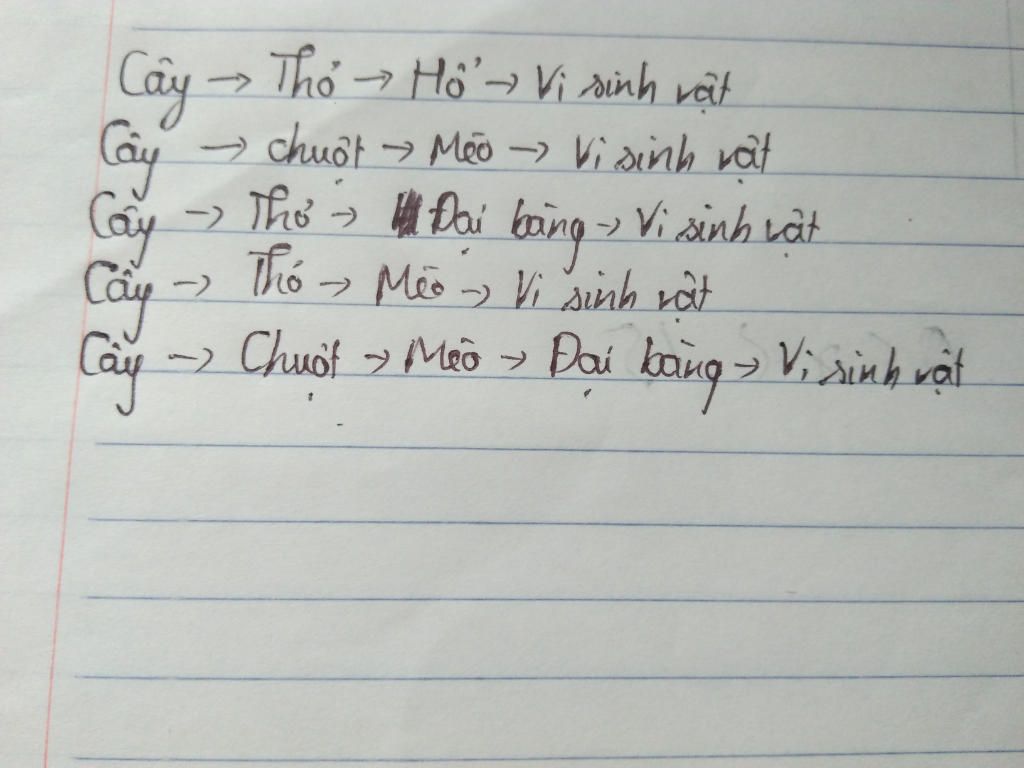 Cây → Thỏ → Hổ → Vi sinh vật
Cây → chuột → Mèo → Vi sinh vật
Cây → Thỏ → Đại bàng → Vi sinh vật
Cây → Thỏ → Mèo → Vi sinh vật
Cây → Chuột → Mèo → Đại bàng → Vi sinh vật